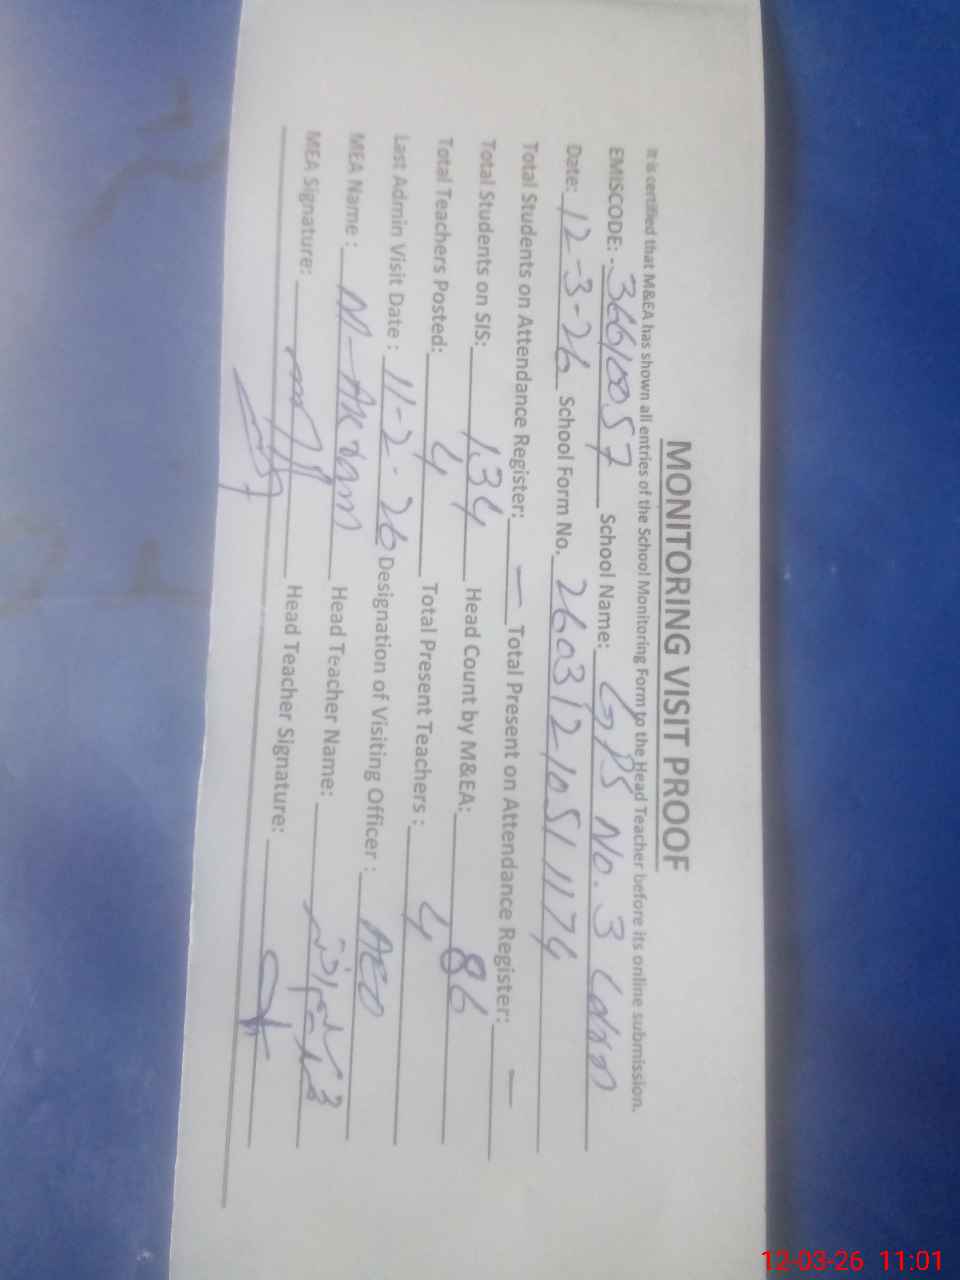 MONITORING VISIT PROOF
It is certified that M&EA has shown all entries of the School Monitoring Form to the Head Teacher before its online submission.
EMISCODE: - 36610057 School Name: GPS No. 3
Date: 12-3-26 School Form No. 2603121051174
Total Students on Attendance Register: — Total Present on Attendance Register: —
Total Students on SIS: 134 Head Count by M&EA: 86
Total Teachers Posted: 4 Total Present Teachers : 4
Last Admin Visit Date : 11-2-26 Designation of Visiting Officer : AEO
MEA Name : M-Akram Head Teacher Name:
MEA Signature: Head Teacher Signature:
12-03-26 11:01